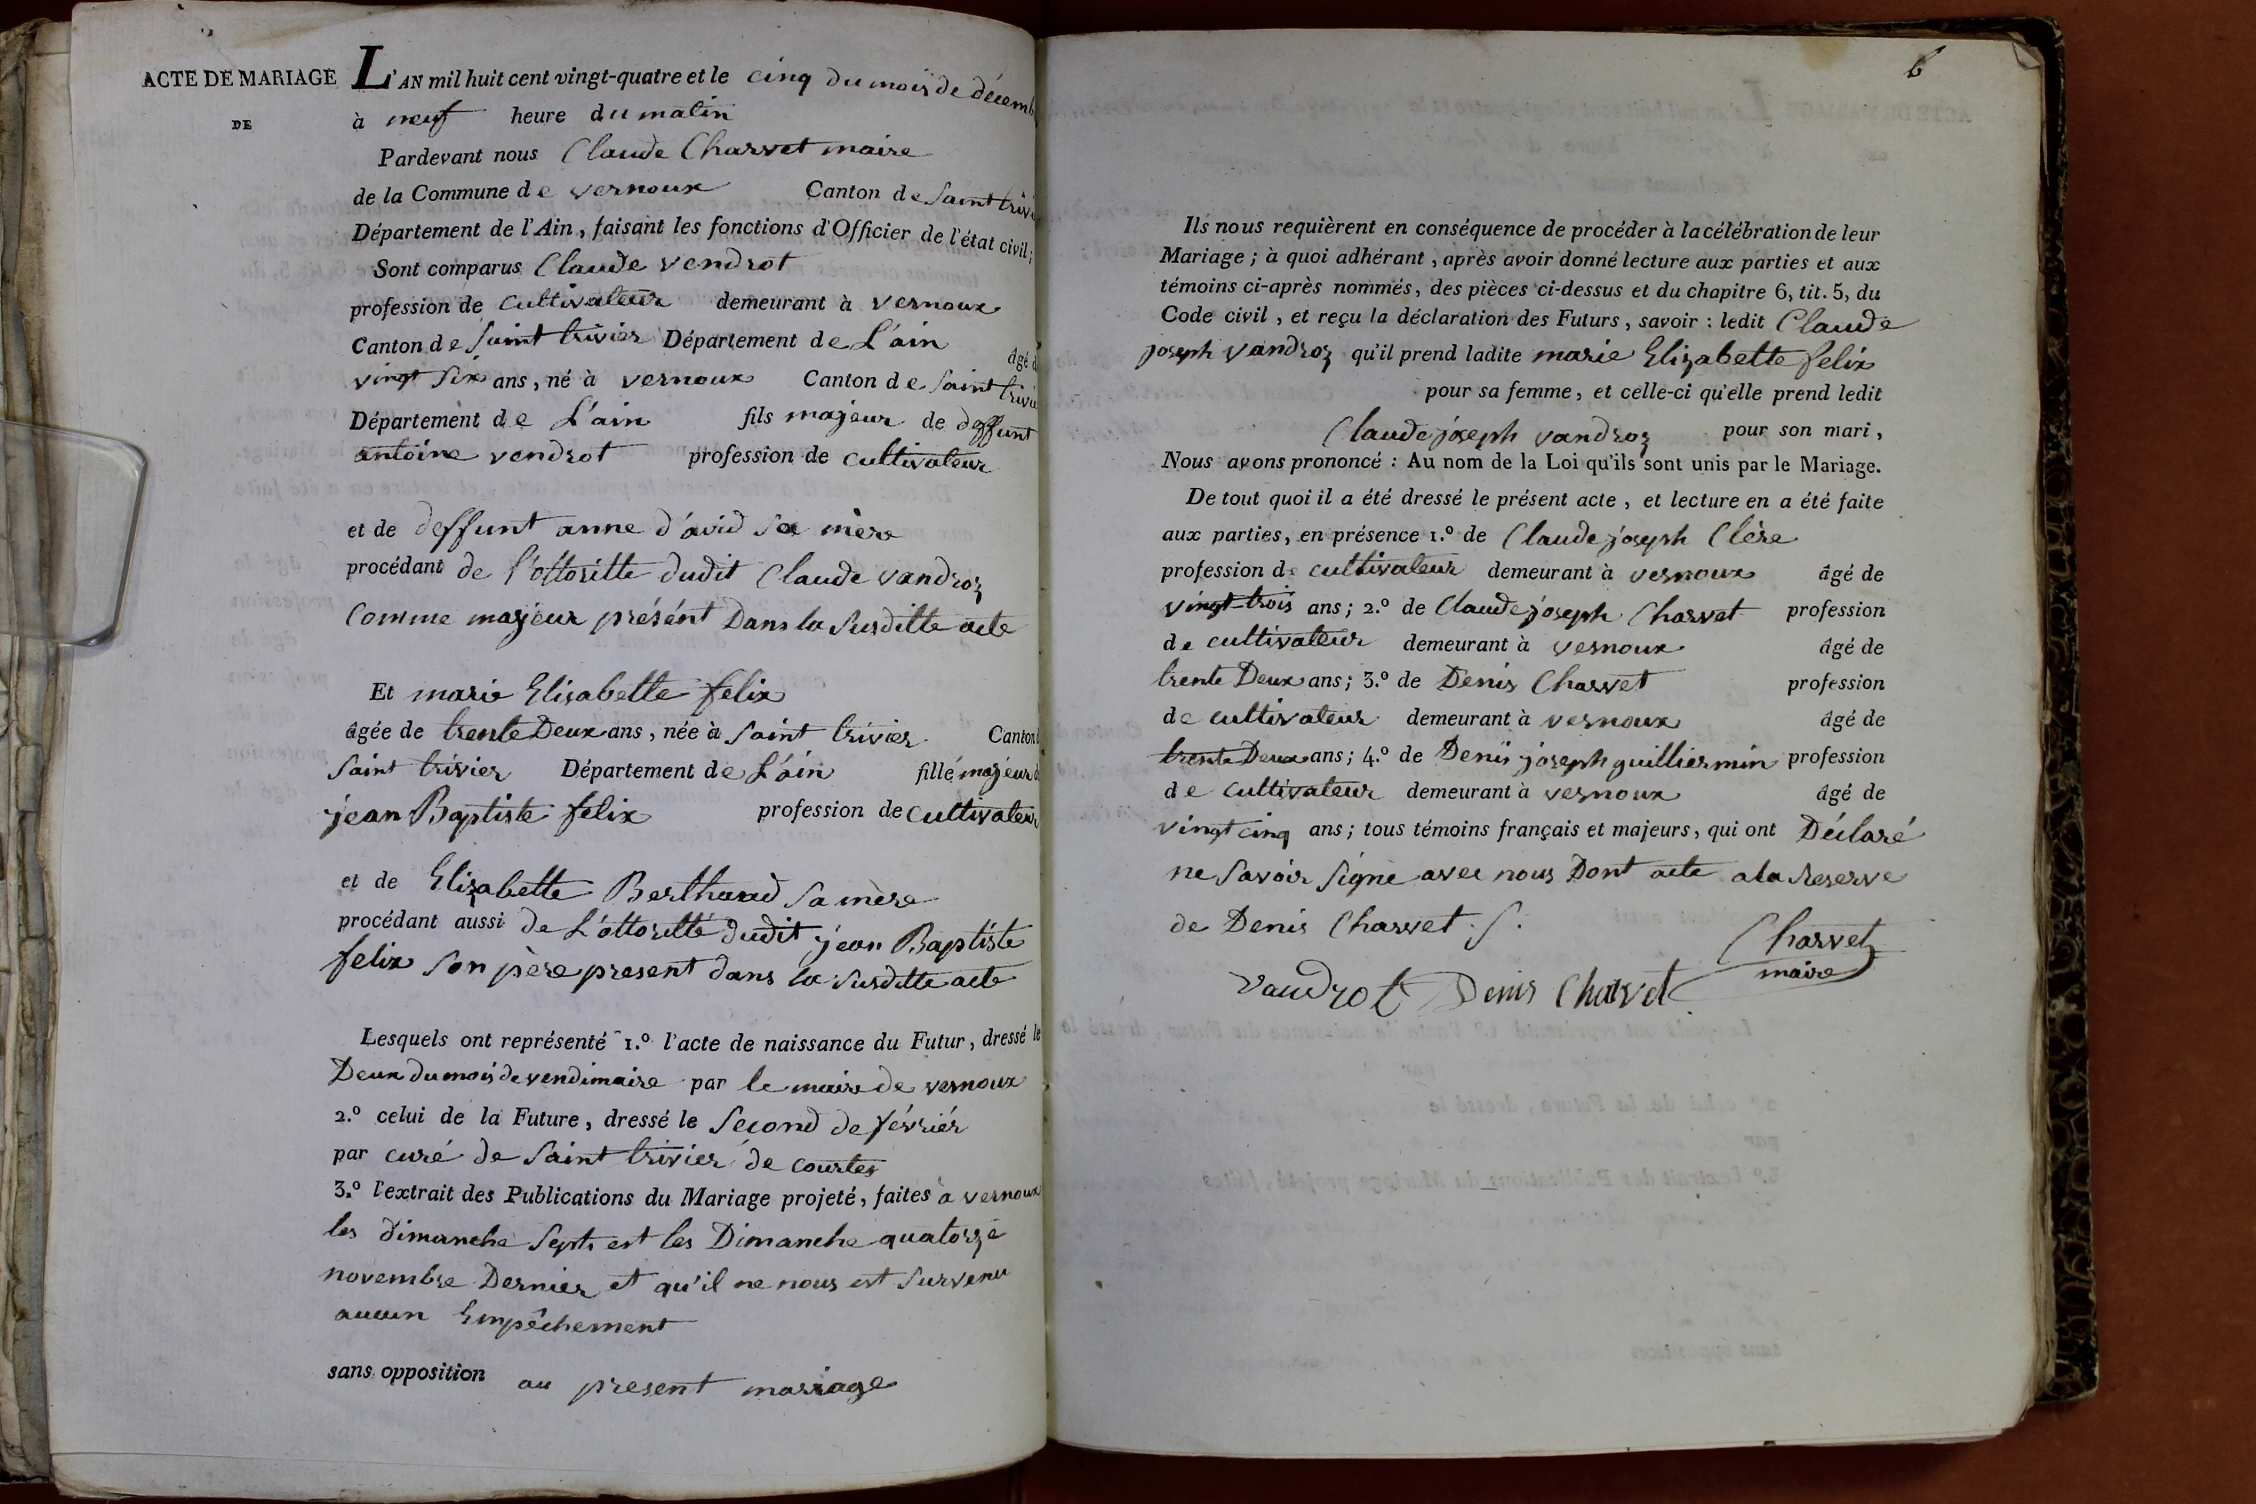 ACTE DE MARIAGE
DE
L'AN mil huit cent vingt-quatre et le cinq du mois de décemb
à neuf heure du matin
Pardevant nous Claude Charvet maire
de la Commune de vernoux Canton de Saint trivi
Département de l'Ain, faisant les fonctions d'Officier de l'état civil;
Sont comparus Claude vendrot
profession de cultivateur demeurant à vernoux
Canton de Saint trivier Département de L'ain âgé d
vingt Six ans, né à vernoux Canton de Saint trivie
Département de L'ain fils majeur de deffunt
antoine vendrot profession de cultivateur
et de deffunt anne d'avid Sa mère
procédant de l'ottoritte dudit Claude vandroz
Comme majeur présént Dans la Susditte acte
Et marie Elisabette felix
âgée de trente Deux ans, née à Saint trivier Canton d
Saint trivier Département de L'ain fille majeur d
jean Baptiste felix profession de cultivateur
et de Elizabette Berthaud Sa mère
procédant aussi de L'ottoritté dudit jean Baptiste
felix Son père present dans la Susditte acte
Lesquels ont représenté 1.º l'acte de naissance du Futur, dressé le
Deux du mois de vendimaire par le maire de vernoux
2.º celui de la Future, dressé le Second de février
par curé de Saint trivier de courtes
3.º l'extrait des Publications du Mariage projeté, faites à vernoux
les dimanche Septs est les Dimanche quatorze
novembre Dernier et qu'il ne nous est Survenu
aucun Empêchement
sans opposition au present mariage
6
Ils nous requièrent en conséquence de procéder à la célébration de leur
Mariage; à quoi adhérant, après avoir donné lecture aux parties et aux
témoins ci-après nommés, des pièces ci-dessus et du chapitre 6, tit. 5, du
Code civil, et reçu la déclaration des Futurs, savoir : ledit Claude
joseph vandroz qu'il prend ladite marie Elizabette felix
pour sa femme, et celle-ci qu'elle prend ledit
Claude joseph vandroz pour son mari,
Nous avons prononcé : Au nom de la Loi qu'ils sont unis par le Mariage.
De tout quoi il a été dressé le présent acte, et lecture en a été faite
aux parties, en présence 1.º de Claude joseph Clère
profession de cultivateur demeurant à vernoux âgé de
vingt-trois ans; 2.º de Claude joseph Charvet profession
de cultivateur demeurant à vernoux âgé de
trente Deux ans; 3.º de Denis Charvet profession
de cultivateur demeurant à vernoux âgé de
trente Deux ans; 4.º de Denis joseph guilliermin profession
de cultivateur demeurant à vernoux âgé de
vingt cinq ans; tous témoins français et majeurs, qui ont Déclaré
ne Savoir Signé avec nous Dont acte a la reserve
de Denis Charvet. S.
Charvet
maire
vaudrot Denis Charvet